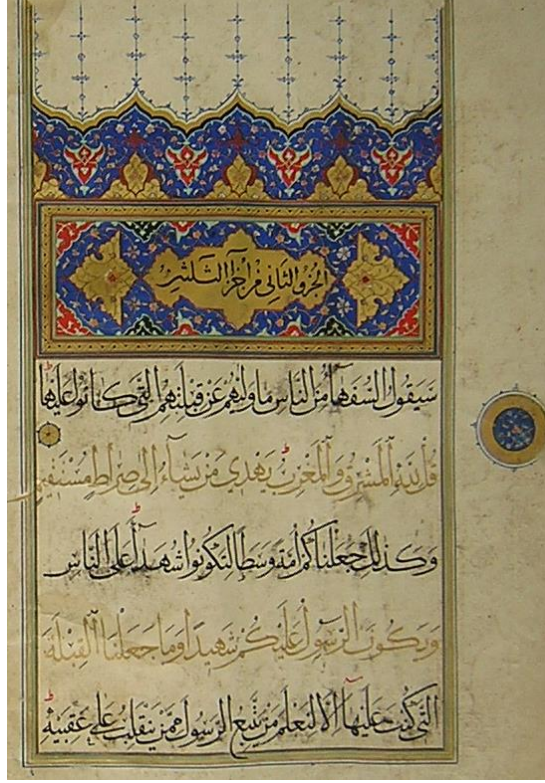 الجزو الثاني من اجزآ الثلثين
سَيَقُولُ السُّفَهَآءُ مِنَ النَّاسِ مَا وَلّٰيهُمْ عَنْ قِبْلَتِهِمُ الَّتِي كَانُوا عَلَيْهَا
قُلْ لِلّٰهِ الْمَشْرِقُ وَالْمَغْرِبُ يَهْدِي مَنْ يَشَآءُ اِلٰى صِرَاطٍ مُسْتَقِيمٍ
وَكَذٰلِكَ جَعَلْنَاكُمْ اُمَّةً وَسَطًا لِتَكُونُوا شُهَدَآءَ عَلَى النَّاسِ
وَيَكُونَ الرَّسُولُ عَلَيْكُمْ شَهِيدًا وَمَا جَعَلْنَا الْقِبْلَةَ
الَّتِي كُنْتَ عَلَيْهَآ اِلَّا لِنَعْلَمَ مَنْ يَتَّبِعُ الرَّسُولَ مِمَّنْ يَنْقَلِبُ عَلٰى عَقِبَيْهِ